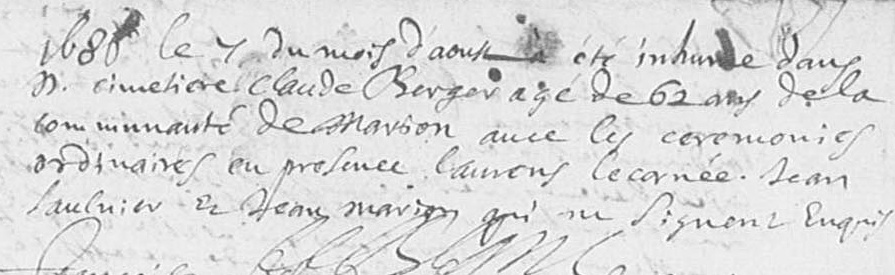 1686 le 7 du mois d'aoust a été inhumé dans
N. cimetiere Claude Berger agé de 62 ans de la
communauté de Marion avec les ceremonies
ordinaires en presence laurens lecornée. Jean
saulnier et Jean marion qui ne signent Enquis